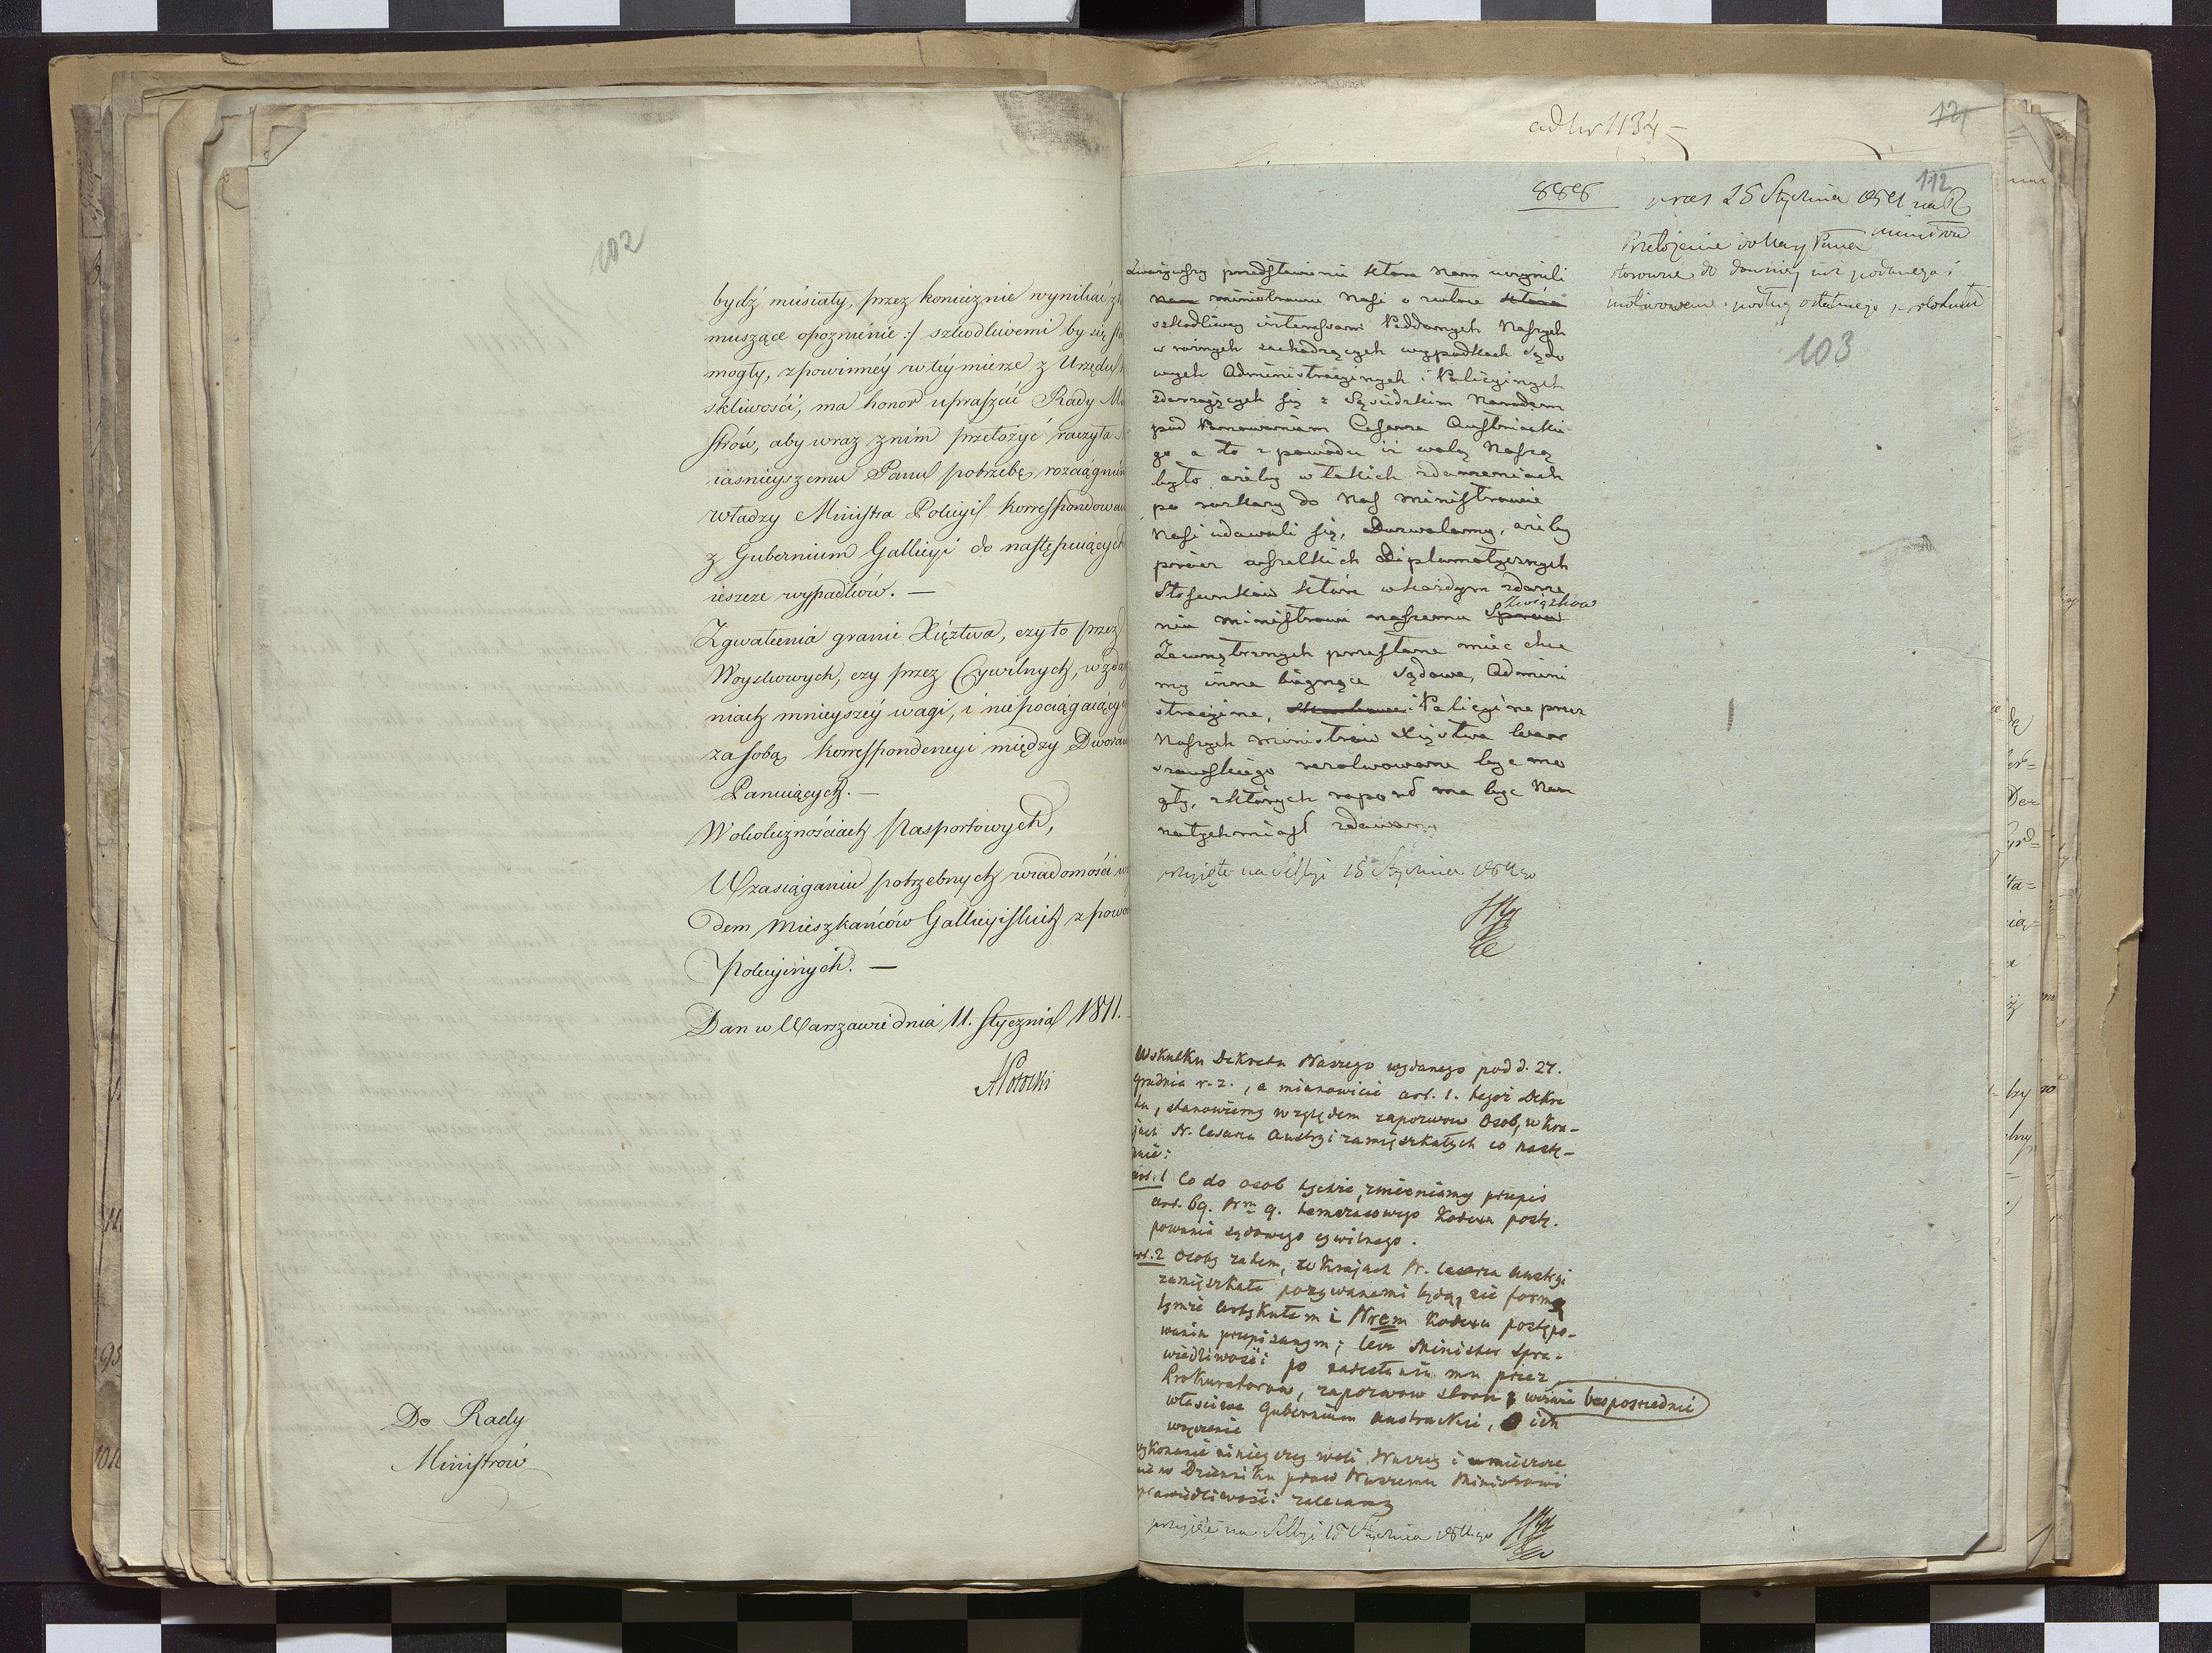 102
bydź musiały, przez koniecznie wynikać
muszące opoznienie :/ szkodliwemi by się
mogły, z powinnéy w téy mierze z Urzędu
skliwości, ma honor upraszać Rady
strów, aby wraz z nim przełożyć raczyła
iasnieyszemu Panu potrzebę rozciągnie
władzy Ministra Policyi korrespondowa
z Gubernium Gallicyi do następuiących
ieszcze wypadków. —
Zgwałcenia granic Xięztwa, czy to przez
Woyskowych, czy przez Cywilnych, w zda
niach mnieyszéy wagi, i nie pociągaiący
za sobą korrespondencyi między Dwora
Panuiących. —
W okolicznościach Pasportowych,
W zasiąganiu potrzebnych wiadomości
dem Mieszkańców Gallicyiskich z powo
Policyinych. —
Dan w Warszawie dnia 11. Stycznia 1811.
APotocki
Do Rady
Ministrów
ad Nr 1134 —
12
112
888
pres 15 Stycznia 1811
Przełożenie do Nay Pana
stosownie do dawniey iuż podanego i
podług ostatniego
103
Zważywszy przedstawienie które nam uczynili
ministrowie Nasi o zwłoce
szkodliwey interessom Poddanych Naszych
w roznych zachodzących wypadkach Sądo
wych Administracyinych i Policyinych
zdarzaiących się z Sąsiedzkim Narodem
pod Panowaniem Cesarza Austriackie
go a to z powodu iż wolą Naszą
było ażeby w takich zdarzeniach
po rozkazy do Nas Ministrowie
Nasi udawali się, Dozwalamy, ażeby
prócz wszelkich Diplomatycznych
Stosunków które w każdym zdarze
niu ministrowi naszemu Związkow
Zewnętrznych przesłane mieć chce
my inne biegnące Sądowe, Admini
stracyine, i Policyine przez
Naszych Ministrów Xięstwa War
szawskiego rezolwowane być mo
gły, z których raport ma być Nam
natychmiast zdawany
przyięte na Sessyi 15 Stycznia 1811go
W skutku Dekretu Naszego wydanego pod d. 27.
Grudnia r. z., a mianowicie art. 1. tegoż Dekre
tu, stanowiemy względem zapozwow Osob, w kra-
jach N. Cesarza Austryi zamięszkałych co nastę-
puie:
art. 1 Co do osob tychże, zmieniamy przepis
art. 69. Nrm 9. tymczasowego Kodexu postę.
powania sądowego cywilnego.
art. 2 Osoby zatem, w krajach N. Cesarza Austryi
zamięszkałe pozywanemi będą, nie formą
tymże artykułem i Nrem Kodexu postępo-
wania przepisanym; lecz Minister Spra-
wiedliwości po nadesłaniu mu przez
Prokuratorow, zapozwow stron, wezwie bezposrednie
właściwe Gubernium Austryackie, o ich
wręczenie
wykonanie ninieyszey woli Naszey i umieszcze
nie w Dzienniku praw Naszemu Ministrowi
sprawiedliwości zalecamy
przyięte na Sessyi 15 Stycznia 1811go